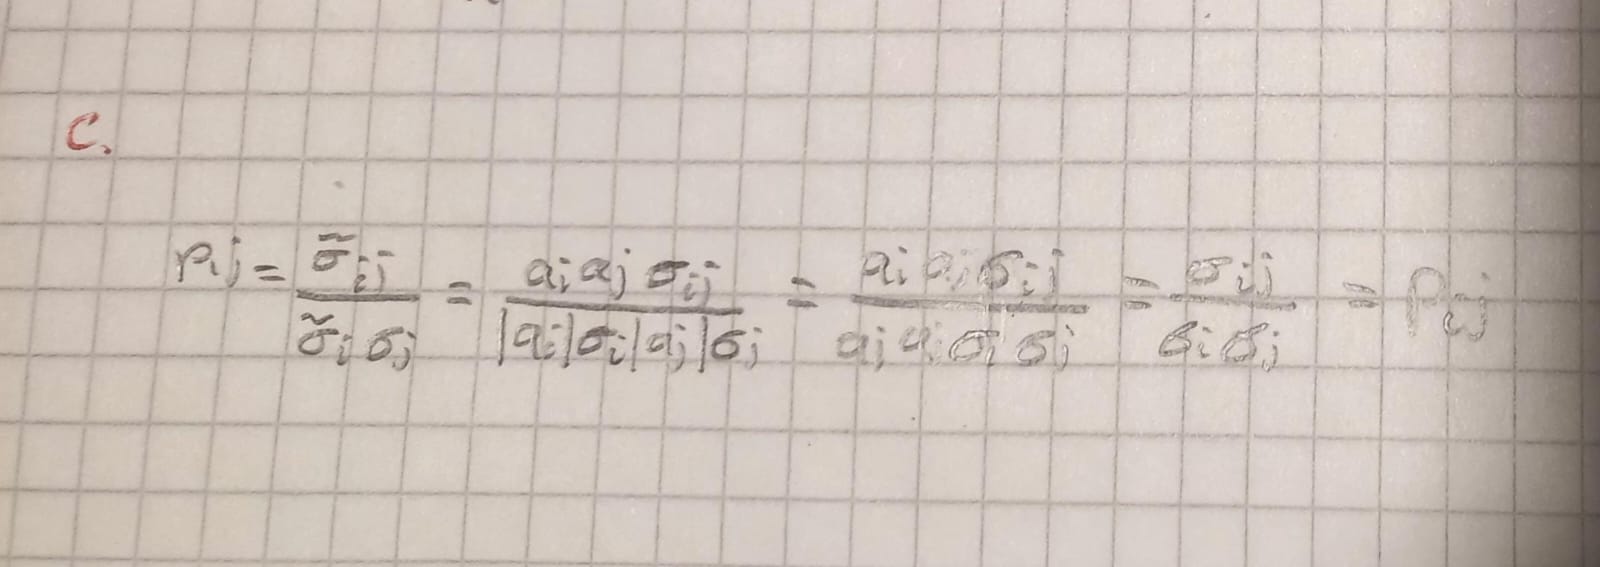 C.
ρij = σ̃ij / σ̃i σj = ai aj σij / |ai|σi|aj|σj = ai aj σij / ai aj σi σj = σij / σi σj = ρij